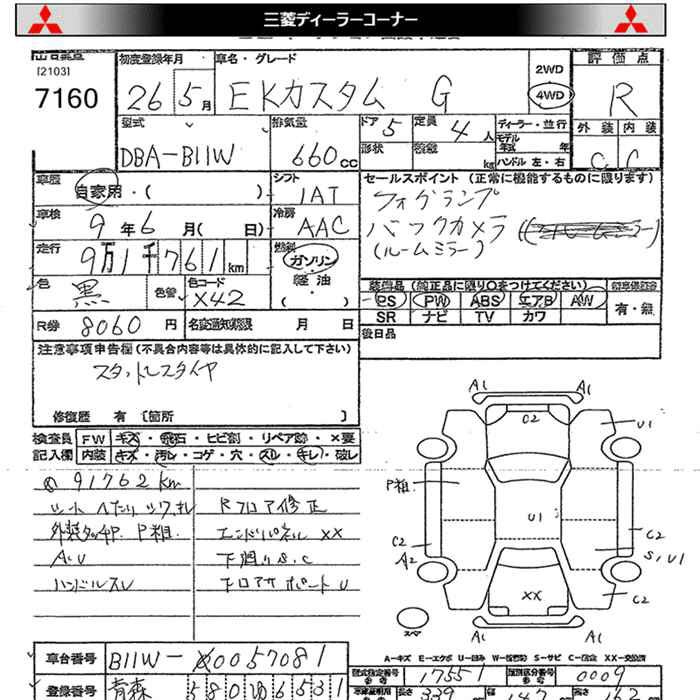 三菱ディーラーコーナー
[2103]
7160
初度登録年月
26 5月
車名・グレード
EKカスタム G
2WD
4WD
評価点
R
外装 内装
C C
型式
DBA-B11W
排気量
660cc
ドア 5
定員 4人
形状
積載 kg
ディーラー・並行
モデル年式 年
ハンドル 左・右
車歴
自家用・( )
シフト
1AT
車検
9年6月( 日)
冷房
AAC
走行
9万1千761km
燃料
ガソリン
軽油
( )
色
黒
色替
色コード
X42
R券 8060円
名変通知期限 月 日
セールスポイント(正常に機能するものに限ります)
フォグランプ
バックカメラ
(ルームミラー)
装備品(純正品に限り○をつけてください)
PS PW ABS エアB AW
SR ナビ TV カワ
有・無
後日品
注意事項申告欄(不具合内容等は具体的に記入して下さい)
スタットレスタイヤ
修復歴 有〔箇所 〕
検査員記入欄
FW キズ・飛石・ヒビ割・リペア跡・×要
内装 キズ・汚レ・コゲ・穴・スレ・キレ・破レ
91762km
外装タッチP. P粗.
AUU
ハンドルスレ
Rフロア修正
エンドパネルXX
下廻りS.C
下ロアサポートU
A1 A1
C2
U1
P粗
U1
C2 C2
A2 S1U1
XX
C2
A1 A1
スペア
A-キズ E-エクボ U-凹み W-板金跡 S-サビ C-腐食 XX-交換済
車台番号 B11W-0057081
型式指定番号 17551
類別区分番号 0009
登録番号 青森 580
長さ 339